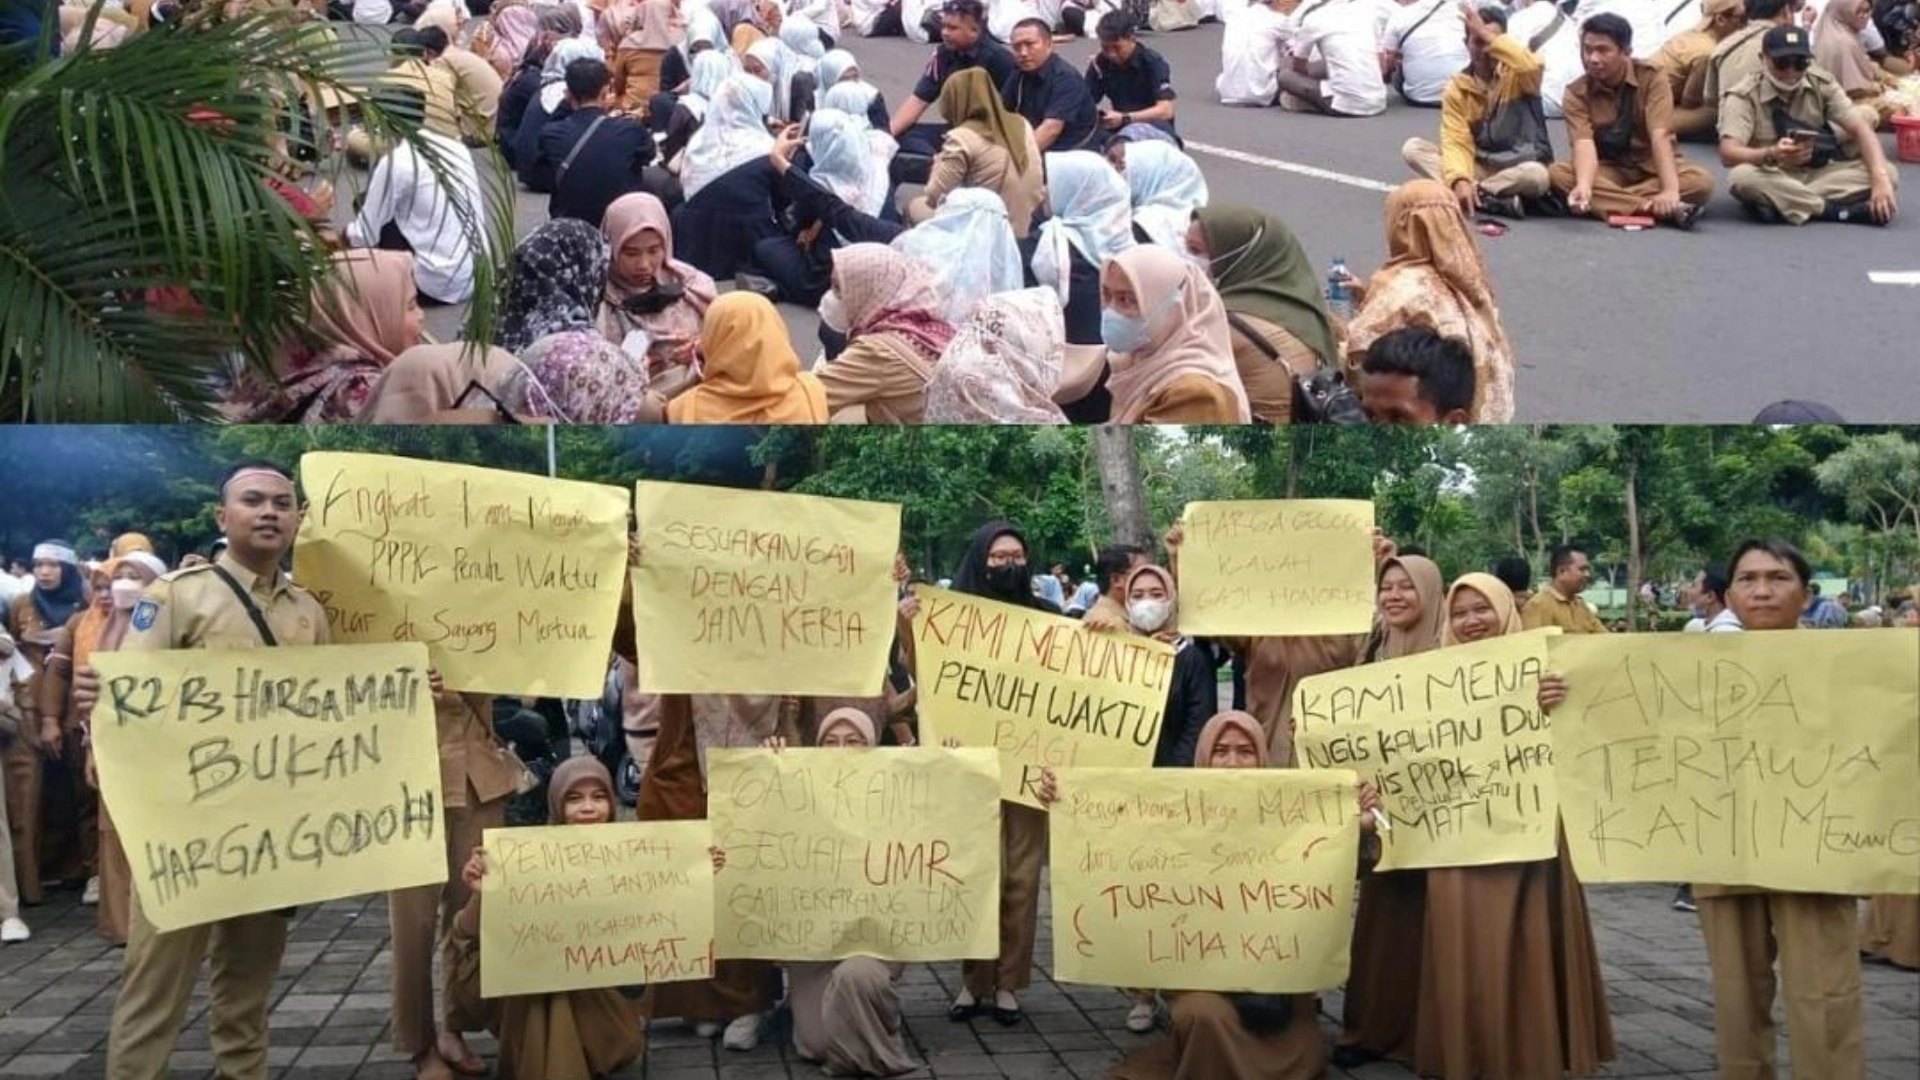 Angkat I am Menjadi
PPPK Penuh Waktu
Biar di Sayang Mertua
SESUAIKAN GAJI
DENGAN
JAM KERJA
KAMI MENUNTUT
PENUH WAKTU
BAGI
R
HARGA
KALAH
GAJI HONORER
R2 R3 HARGA MATI
BUKAN
HARGA GODOKH
PEMERINTAH
MANA JANJIMU
YANG DISAKSIKAN
MALAIKAT
MAUT
GAJI KAMI
SESUAI UMR
GAJI SEKARANG TDK
CUKUP BELI BENSIN
Harga MATI
dari
TURUN MESIN
LIMA KALI
KAMi MENA
NGiS KALiAN DU
PPPK
PENUH WAKTU
MATI !!
ANDA
TERTAWA
KAMI MENANG